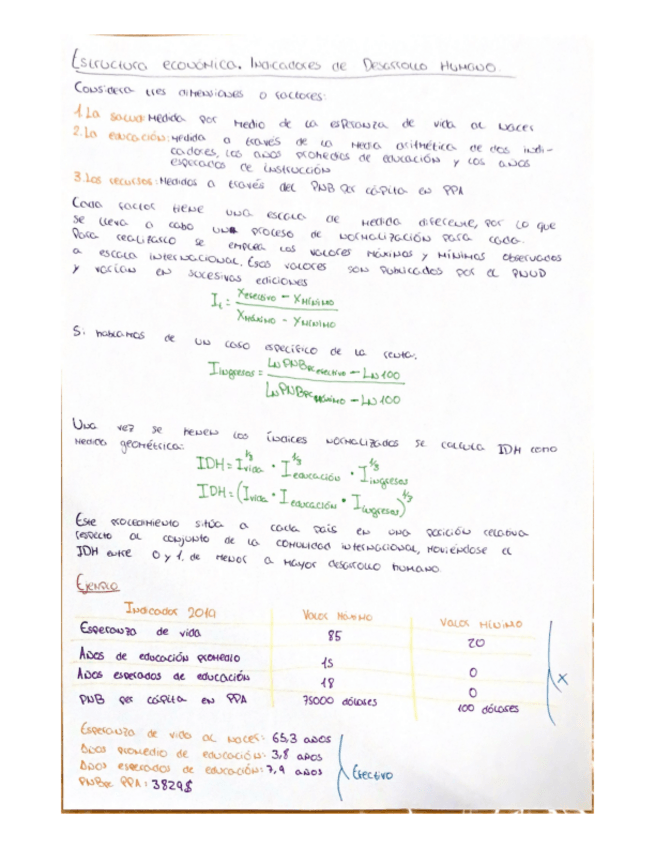 Estructura económica. Indicadores de Desarrollo Humano.
Considera tres dimensiones o factores:
1. La salud: Medida por medio de la esperanza de vida al nacer
2. La educación: medida a través de la media aritmética de dos indi-
cadores, los años promedios de educación y los años
esperados de instrucción
3. Los recursos: Medidos a través del PNB per cápita en PPA
Cada factor tiene una escala de medida diferente, por lo que
se lleva a cabo un proceso de normalización para cada.
Para realizarlo se emplea los valores máximos y mínimos observados
a escala internacional. Esos valores son publicados por el PNUD
y varían en sucesivas ediciones
Iᵢ = (Xefectivo - Xmínimo) / (Xmáximo - Xmínimo)
Si hablamos de un caso específico de la renta.
Iingresos = (Ln PNBpc efectivo - Ln 100) / (Ln PNBpc máximo - Ln 100)
Una vez se tienen los índices normalizados se calcula IDH como
media geométrica:
IDH = Ivida^1/3 · Ieducación^1/3 · Iingresos^1/3
IDH = (Ivida · Ieducación · Iingresos)^1/3
Este procedimiento sitúa a cada país en una posición relativa
respecto al conjunto de la comunidad internacional, moviéndose el
IDH entre 0 y 1, de menor a mayor desarrollo humano.
Ejemplo
Indicador 2019 Valor Máximo Valor Mínimo
Esperanza de vida 85 20
Años de educación promedio 15 0
Años esperados de educación 18 0
PNB per cápita en PPA 75000 dólares 100 dólares
X
Esperanza de vida al nacer: 65,3 años
Años promedio de educación: 3,8 años
Años esperados de educación: 7,9 años
PNBpc PPA: 3829$
Efectivo